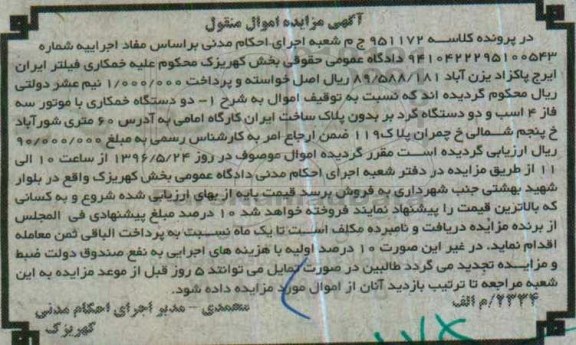 آگهی مزایده اموال منقول
در پرونده کلاسه ۹۵۱۱۷۲ ج م شعبه اجرای احکام مدنی براساس مفاد اجراییه شماره
۹۴۱۰۴۲۲۲۹۵۱۰۰۵۴۳ دادگاه عمومی حقوقی بخش کهریزک محکوم علیه خمکاری فیلتر ایران
ایرج پاکزاد یزن آباد ۸۹/۵۸۸/۱۸۱ ریال اصل خواسته و پرداخت ۱/۰۰۰/۰۰۰ نیم عشر دولتی
ریال محکوم گردیده اند که نسبت به توقیف اموال به شرح ۱- دو دستگاه خمکاری با موتور سه
فاز ۴ اسب و دو دستگاه گرد بر بدون پلاک ساخت ایران کارگاه امامی به آدرس ۶۰ متری شورآباد
خ پنجم شمالی خ چمران پلاک۱۱۹ ضمن ارجاع امر به کارشناس رسمی به مبلغ ۹۰/۰۰۰/۰۰۰
ریال ارزیابی گردیده است مقرر گردیده اموال موصوف در روز ۱۳۹۶/۵/۲۴ از ساعت ۱۰ الی
۱۱ از طریق مزایده در دفتر شعبه اجرای احکام مدنی دادگاه عمومی بخش کهریزک واقع در بلوار
شهید بهشتی جنب شهرداری به فروش برسد قیمت پایه از بهای ارزیابی شده شروع و به کسانی
که بالاترین قیمت را پیشنهاد نمایند فروخته خواهد شد ۱۰ درصد مبلغ پیشنهادی فی المجلس
از برنده مزایده دریافت و نامبرده مکلف است تا یک ماه نسبت به پرداخت الباقی ثمن معامله
اقدام نماید، در غیر این صورت ۱۰ درصد اولیه با هزینه های اجرایی به نفع صندوق دولت ضبط
و مزایده تجدید می گردد طالبین در صورت تمایل می توانند ۵ روز قبل از موعد مزایده به این
شعبه مراجعه تا ترتیب بازدید آنان از اموال مورد مزایده داده شود.
۲۳۳۴/م الف
محمدی - مدیر اجرای احکام مدنی
کهریزک